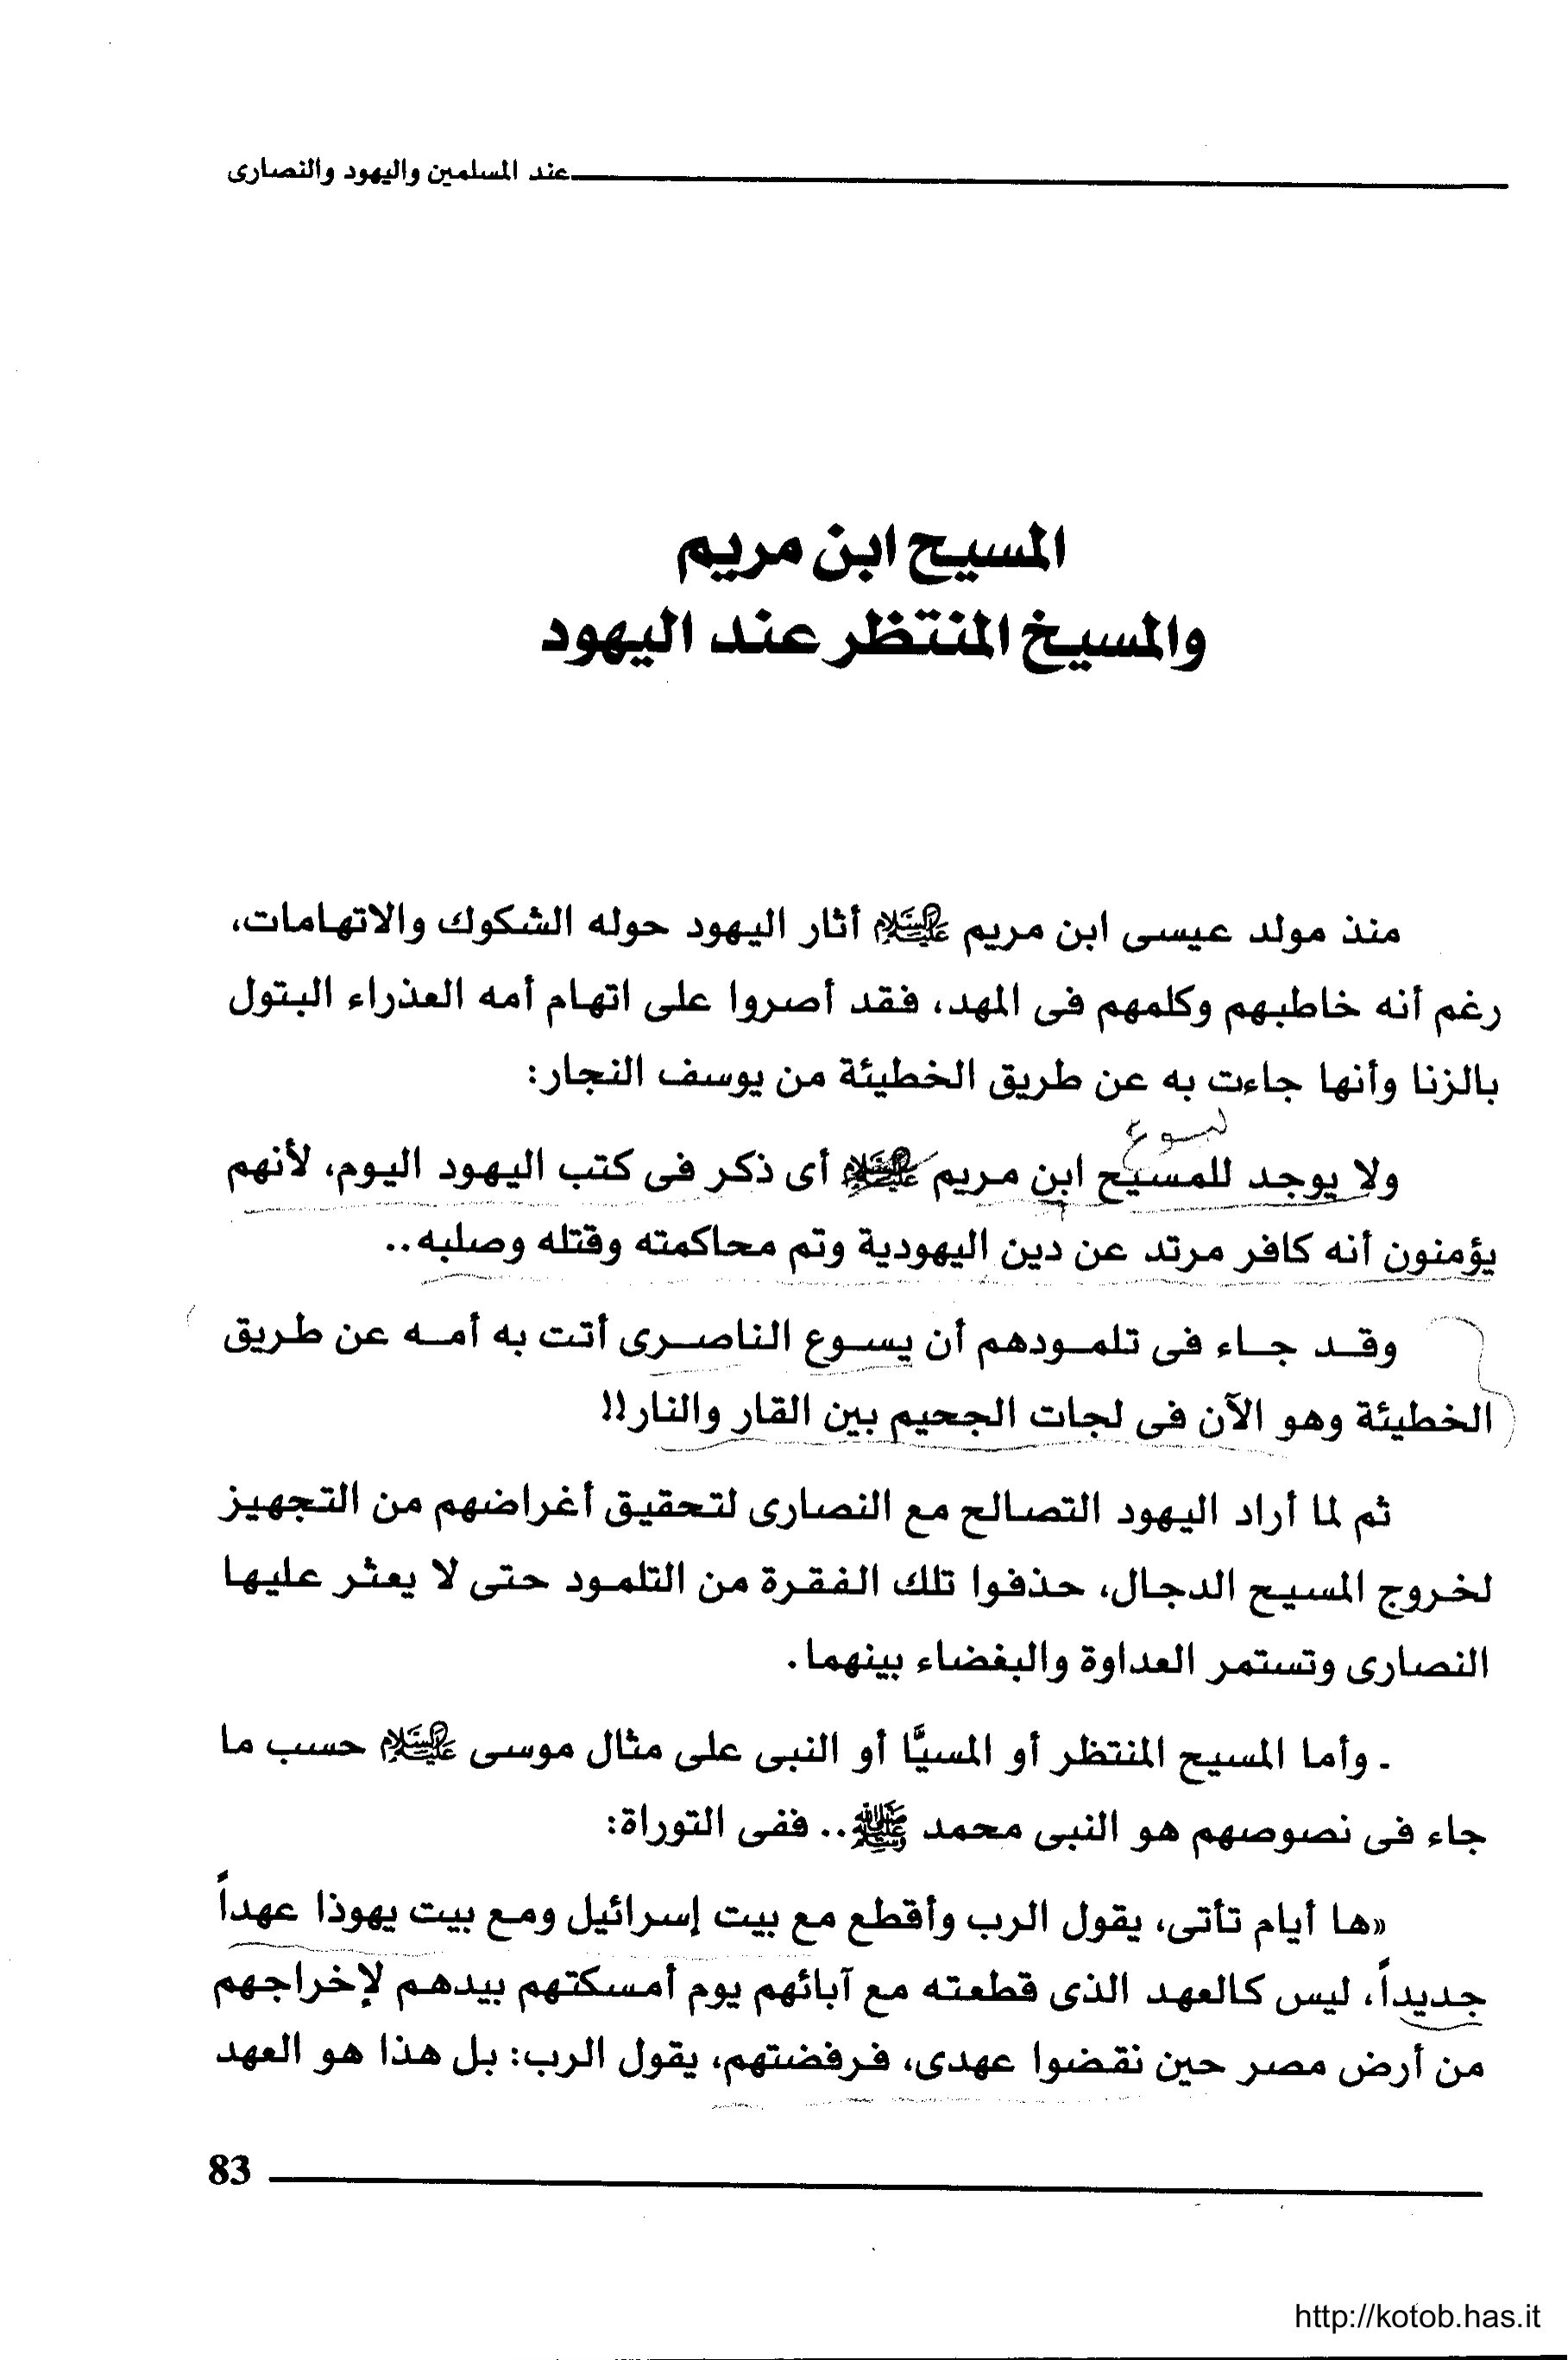 عند المسلمين واليهود والنصارى
المسيح ابن مريم
والمسيخ المنتظر عند اليهود
منذ مولد عيسى ابن مريم عليه السلام أثار اليهود حوله الشكوك والاتهامات،
رغم أنه خاطبهم وكلمهم فى المهد، فقد أصروا على اتهام أمه العذراء البتول
بالزنا وأنها جاءت به عن طريق الخطيئة من يوسف النجار:
ولا يوجد للمسيح ابن مريم عليه السلام أى ذكر فى كتب اليهود اليوم، لأنهم
يؤمنون أنه كافر مرتد عن دين اليهودية وتم محاكمته وقتله وصلبه..
وقد جاء فى تلمودهم أن يسوع الناصرى أتت به أمه عن طريق
الخطيئة وهو الآن فى لجات الجحيم بين القار والنار!!
ثم لما أراد اليهود التصالح مع النصارى لتحقيق أغراضهم من التجهيز
لخروج المسيح الدجال، حذفوا تلك الفقرة من التلمود حتى لا يعثر عليها
النصارى وتستمر العداوة والبغضاء بينهما.
ـ وأما المسيح المنتظر أو المسيَّا أو النبى على مثال موسى عليه السلام حسب ما
جاء فى نصوصهم هو النبى محمد ﷺ.. ففى التوراة:
«ها أيام تأتى، يقول الرب وأقطع مع بيت إسرائيل ومع بيت يهوذا عهداً
جديداً، ليس كالعهد الذى قطعته مع آبائهم يوم أمسكتهم بيدهم لإخراجهم
من أرض مصر حين نقضوا عهدى، فرفضتهم، يقول الرب: بل هذا هو العهد
83
http://kotob.has.it